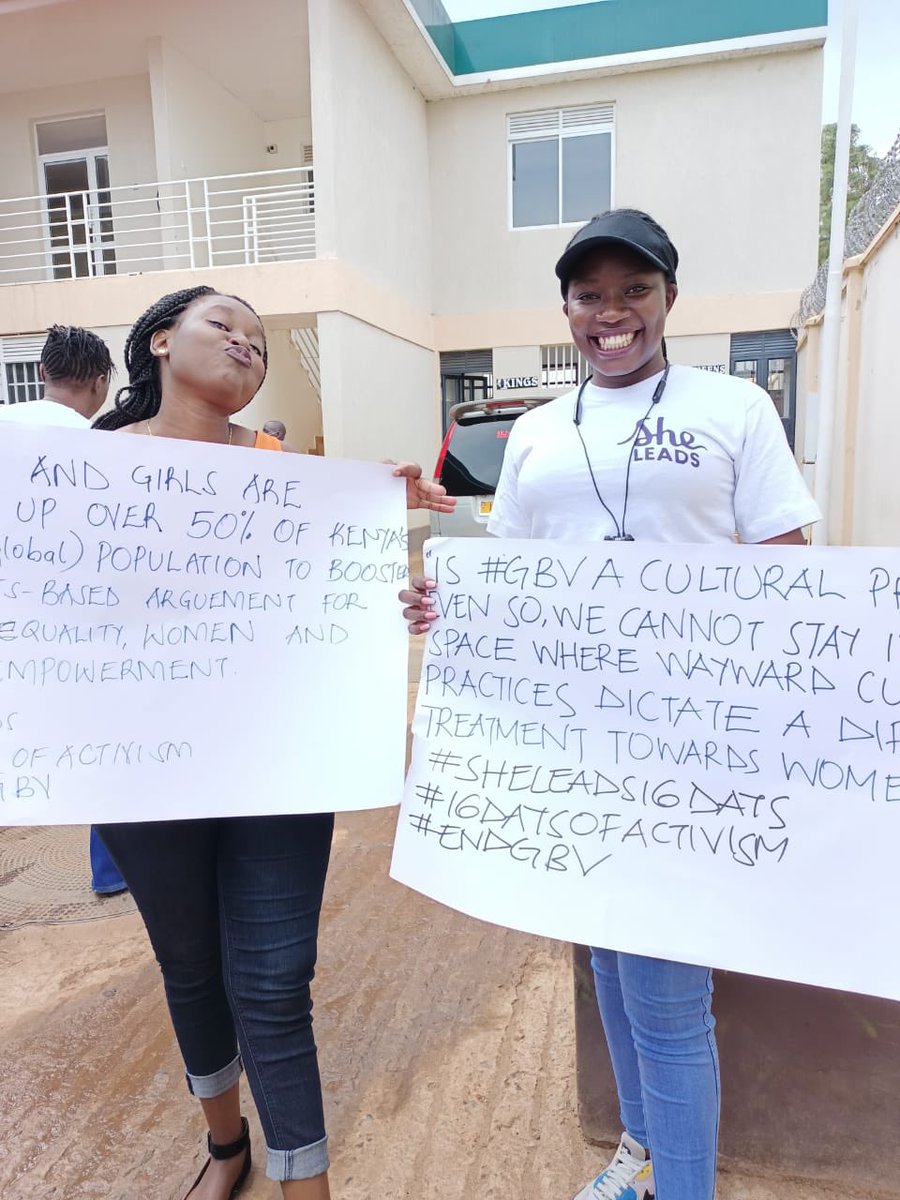 KINGS
She
LEADS
AND GIRLS ARE
UP OVER 50% OF KENYA'S
global) POPULATION TO BOOSTER
S-BASED ARGUEMENT FOR
EQUALITY, WOMEN AND
EMPOWERMENT.
OF ACTIVISM
GBV
"IS #GBV A CULTURAL
EVEN SO, WE CANNOT STAY
SPACE WHERE WAYWARD CU
PRACTICES DICTATE A DIF
TREATMENT TOWARDS WOME
#SHELEADS16DATS
#16DATSOFACTIVISM
#ENDGBV